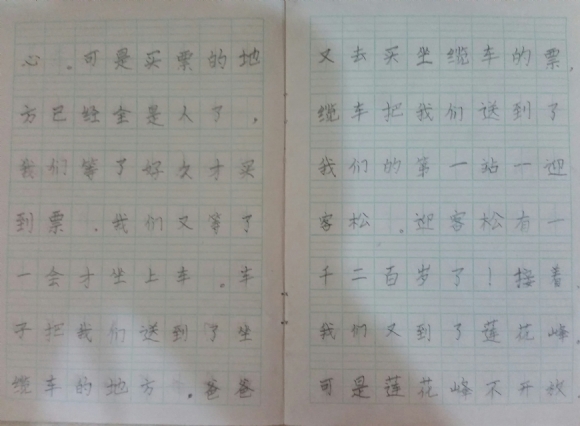 心。可是买票的地
方已经全是人了，
我们等了好久才买
到票。我们又等了
一会才坐上车。车
子把我们送到了坐
缆车的地方。爸爸
又去买坐缆车的票，
缆车把我们送到了
我们的第一站一迎
客松。迎客松有一
千二百岁了！接着
我们又到了莲花峰，
可是莲花峰不开放，